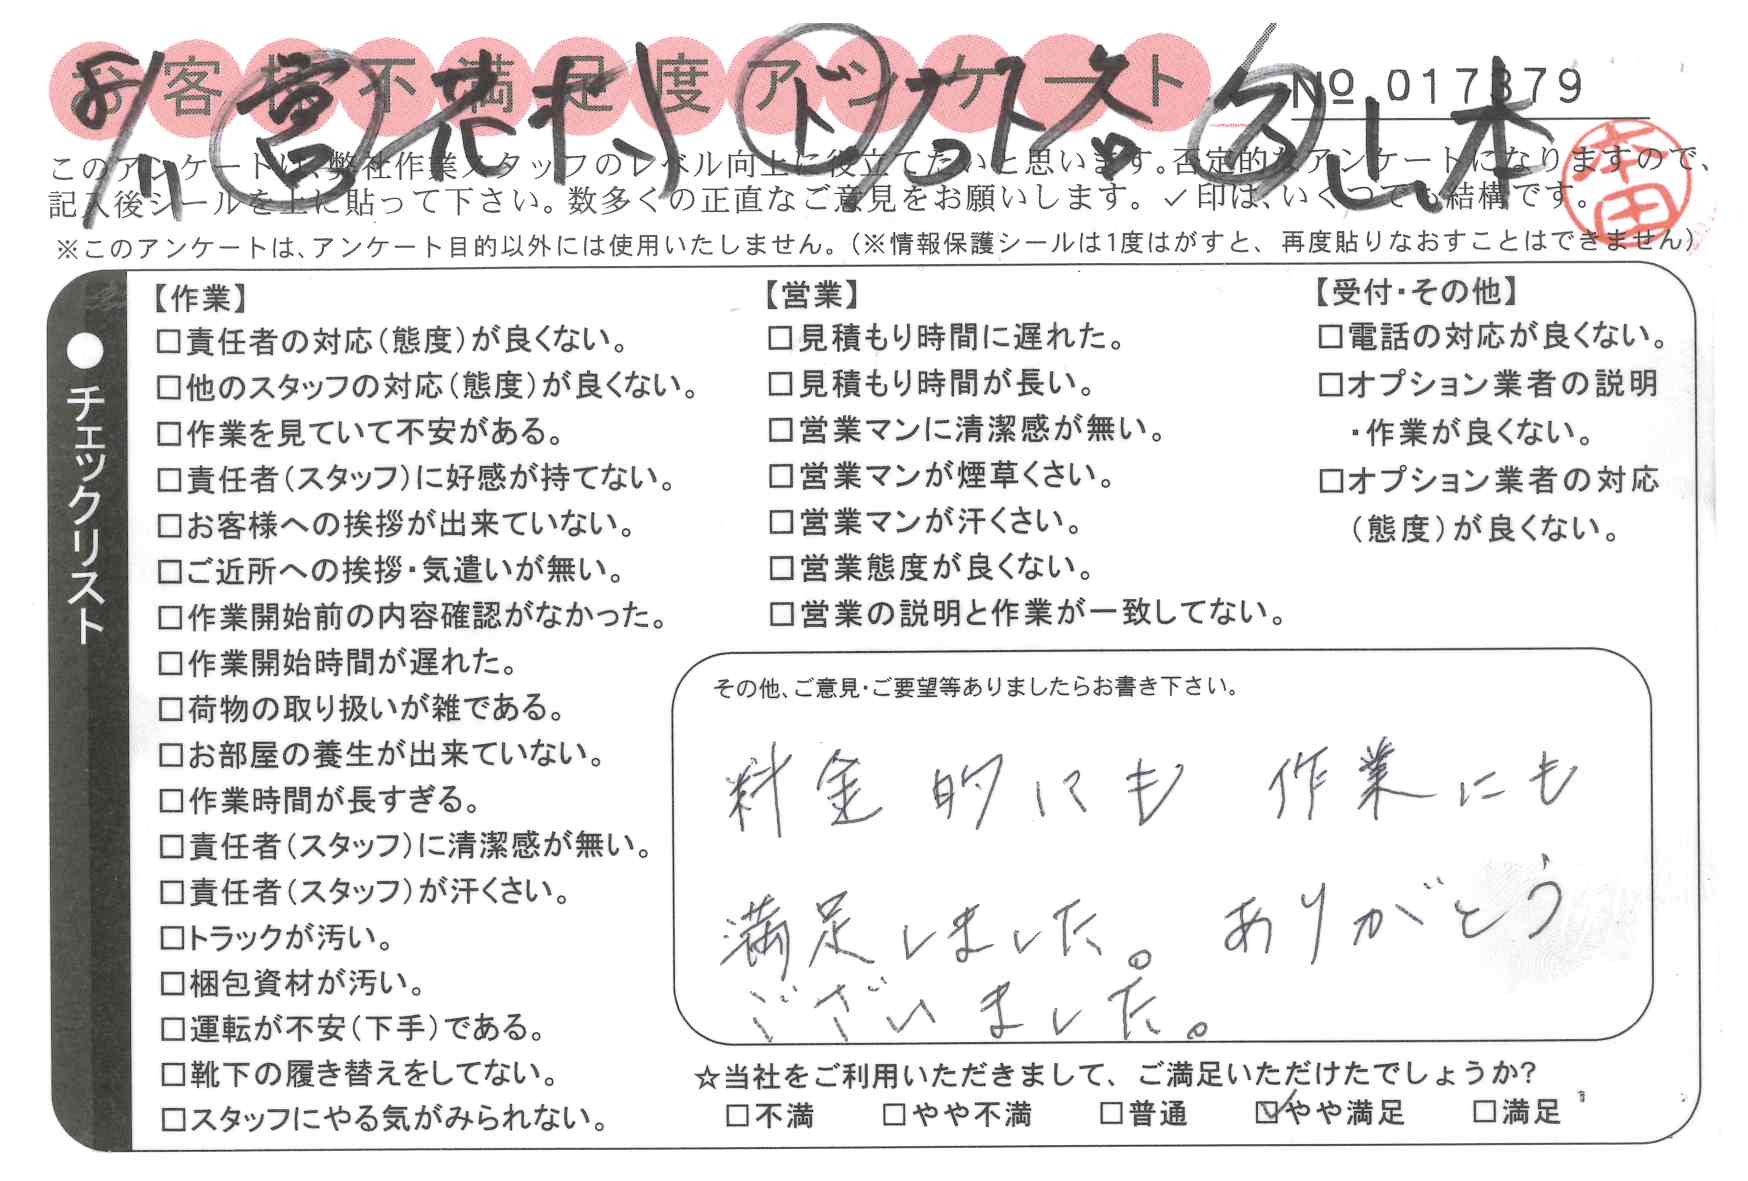 お客様不満足度アンケート
№ 017379
8/11 営 志村 ド 山本
本田
このアンケートは、弊社作業スタッフのレベル向上に役立てたいと思います。否定的なアンケートになりますので、
記入後シールを上に貼って下さい。数多くの正直なご意見をお願いします。✓印は、いくつでも結構です。
※このアンケートは、アンケート目的以外には使用いたしません。（※情報保護シールは1度はがすと、再度貼りなおすことはできません）
●チェックリスト
【作業】
□責任者の対応（態度）が良くない。
□他のスタッフの対応（態度）が良くない。
□作業を見ていて不安がある。
□責任者（スタッフ）に好感が持てない。
□お客様への挨拶が出来ていない。
□ご近所への挨拶・気遣いが無い。
□作業開始前の内容確認がなかった。
□作業開始時間が遅れた。
□荷物の取り扱いが雑である。
□お部屋の養生が出来ていない。
□作業時間が長すぎる。
□責任者（スタッフ）に清潔感が無い。
□責任者（スタッフ）が汗くさい。
□トラックが汚い。
□梱包資材が汚い。
□運転が不安（下手）である。
□靴下の履き替えをしてない。
□スタッフにやる気がみられない。
【営業】
□見積もり時間に遅れた。
□見積もり時間が長い。
□営業マンに清潔感が無い。
□営業マンが煙草くさい。
□営業マンが汗くさい。
□営業態度が良くない。
□営業の説明と作業が一致してない。
【受付・その他】
□電話の対応が良くない。
□オプション業者の説明
・作業が良くない。
□オプション業者の対応
（態度）が良くない。
その他、ご意見・ご要望等ありましたらお書き下さい。
料金的にも 作業にも
満足しました。ありがとう
ございました。
☆当社をご利用いただきまして、ご満足いただけたでしょうか?
□不満 □やや不満 □普通 ☑やや満足 □満足